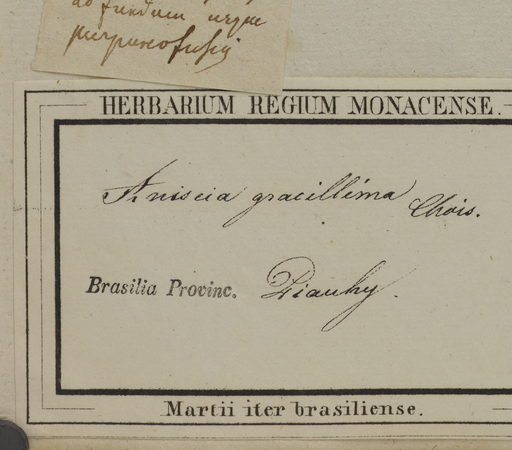 ad fundum usque
purpureofusci
HERBARIUM REGIUM MONACENSE.
Aniseia gracillima Chois.
Brasilia Provinc. Piauhy.
Martii iter brasiliense.